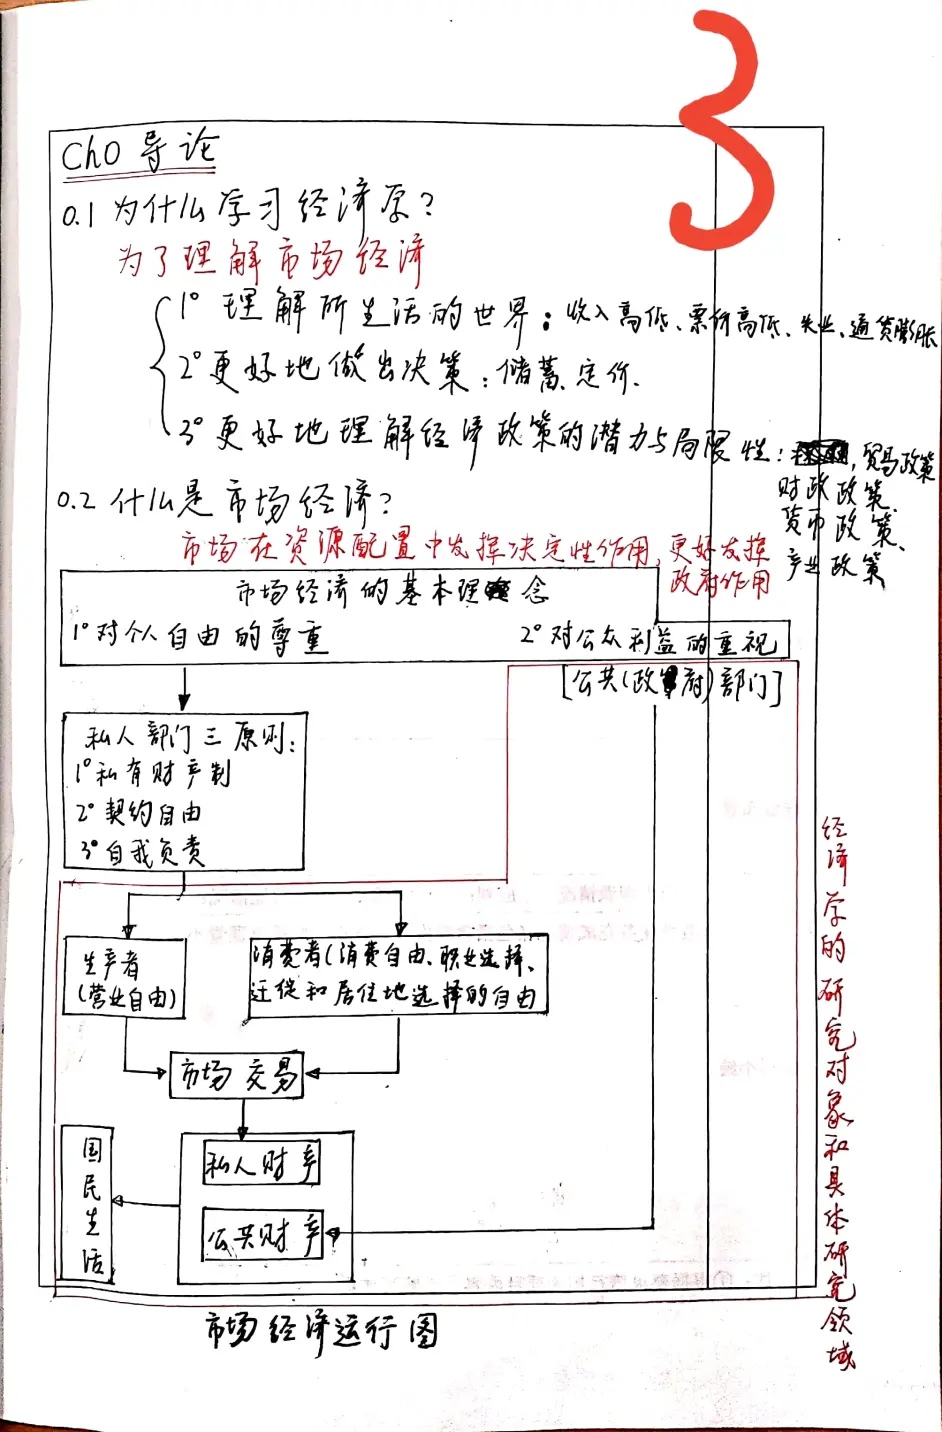 3
Ch0 导论
0.1 为什么学习经济原?
为了理解市场经济
1° 理解所生活的世界:收入高低、票价高低、失业、通货膨胀
2° 更好地做出决策:储蓄、定价.
3° 更好地理解经济政策的潜力与局限性:贸易政策
财政政策、
货币政策、
产业政策
0.2 什么是市场经济?
市场在资源配置中发挥决定性作用,更好发挥
政府作用
市场经济的基本理念
1° 对个人自由的尊重
2° 对公众利益的重视
[公共(政府)部门]
私人部门三原则:
1° 私有财产制
2° 契约自由
3° 自我负责
生产者
(营业自由)
消费者(消费自由、职业选择、
迁徙和居住地选择的自由
市场交易
私人财产
公共财产
国民生活
经济学的研究对象和具体研究领域
市场经济运行图